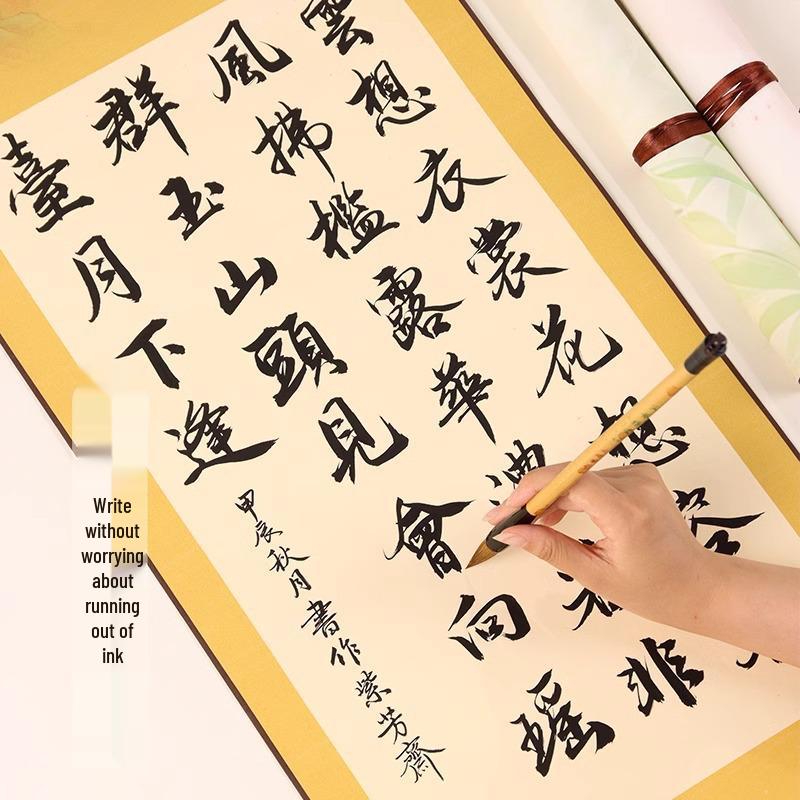 雲想衣裳花想容
風拂檻露華濃若非
群玉山頭見會向瑶
臺月下逢
甲辰秋月書作紫芳齋
Write
without
worrying
about
running
out of
ink